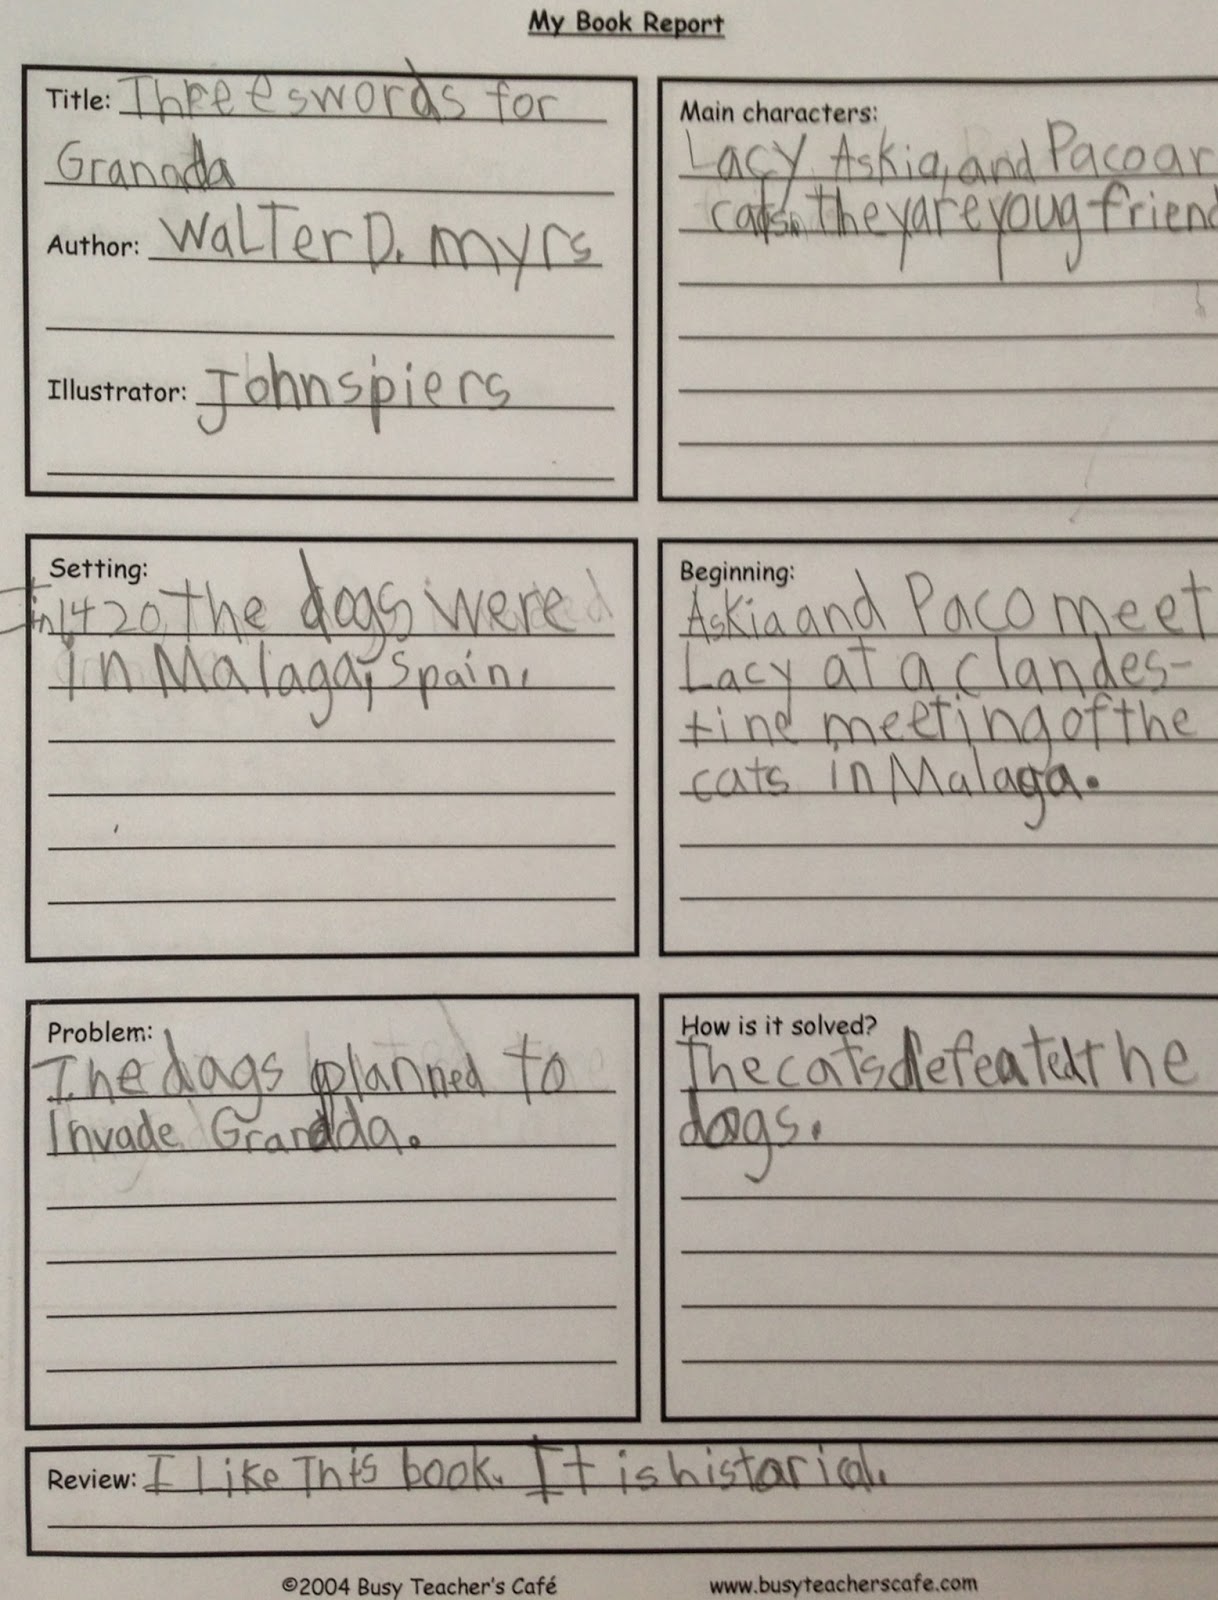 My Book Report
Title: Threeeswords for
Granada
Author: Walter D. myrs
Illustrator: Johnspiers
Main characters:
Lacy, Askia, and Paco ar
cats. they are youg friend
Setting:
In 1420 the dogs were
in Malaga, Spain.
Beginning:
Askia and Paco meet
Lacy at a clandes-
tine meeting of the
cats in Malaga.
Problem:
The dags planned to
Invade Granada.
How is it solved?
The cats defeated the
dogs.
Review: I Like This book. It is historical.
©2004 Busy Teacher's Café
www.busyteacherscafe.com